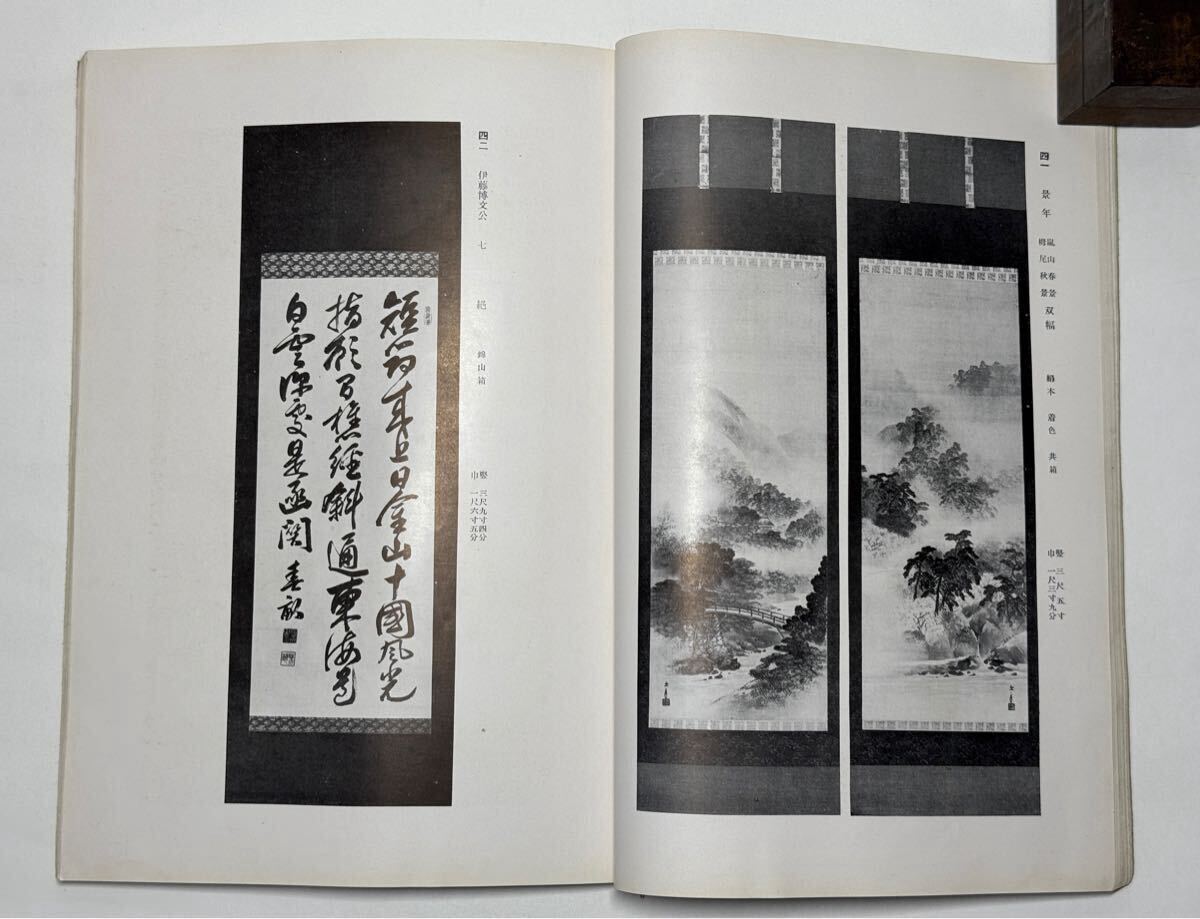 四一 景年 嵐山春景
栂尾秋景 双幅 絹本 着色 共箱
竪 三尺五寸
巾 一尺三寸九分
四二 伊藤博文公 七絕 錦山箱
竪 三尺九寸四分
巾 一尺六寸五分
短筇来上日金山十國風光
指顧間樵徑斜通東海道
白雲深處是函関 春畝